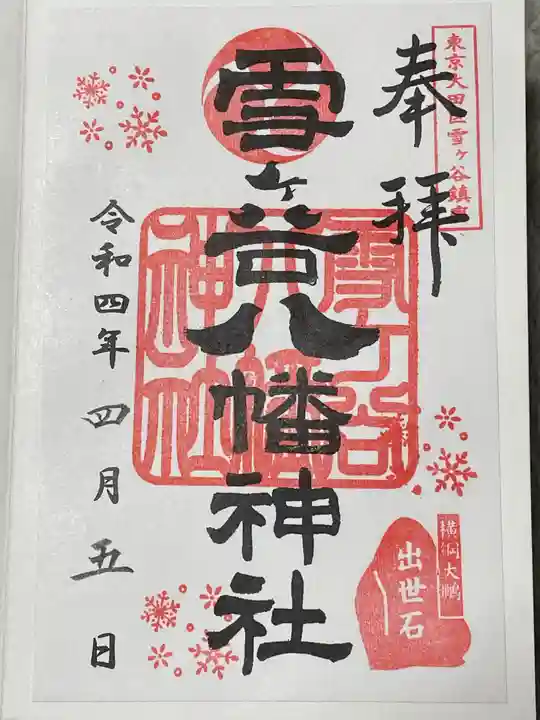 東京大田区雪ヶ谷鎮
奉拝
雪ヶ谷八幡神社
雪ヶ谷
八幡
神社
横綱大鵬
出世石
令和四年四月五日